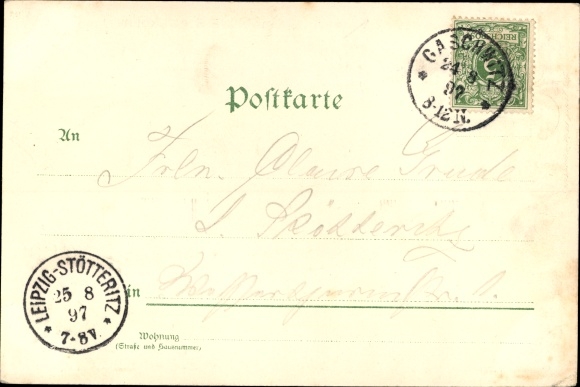 GASCHWITZ
24 8
97
8-12N.
REICHSPOST
Postkarte
An
Frln. Claire Grude
L. Stötteritz
in
LEIPZIG-STÖTTERITZ
25 8
97
7-8V.
Wohnung
(Straße und Hausnummer)